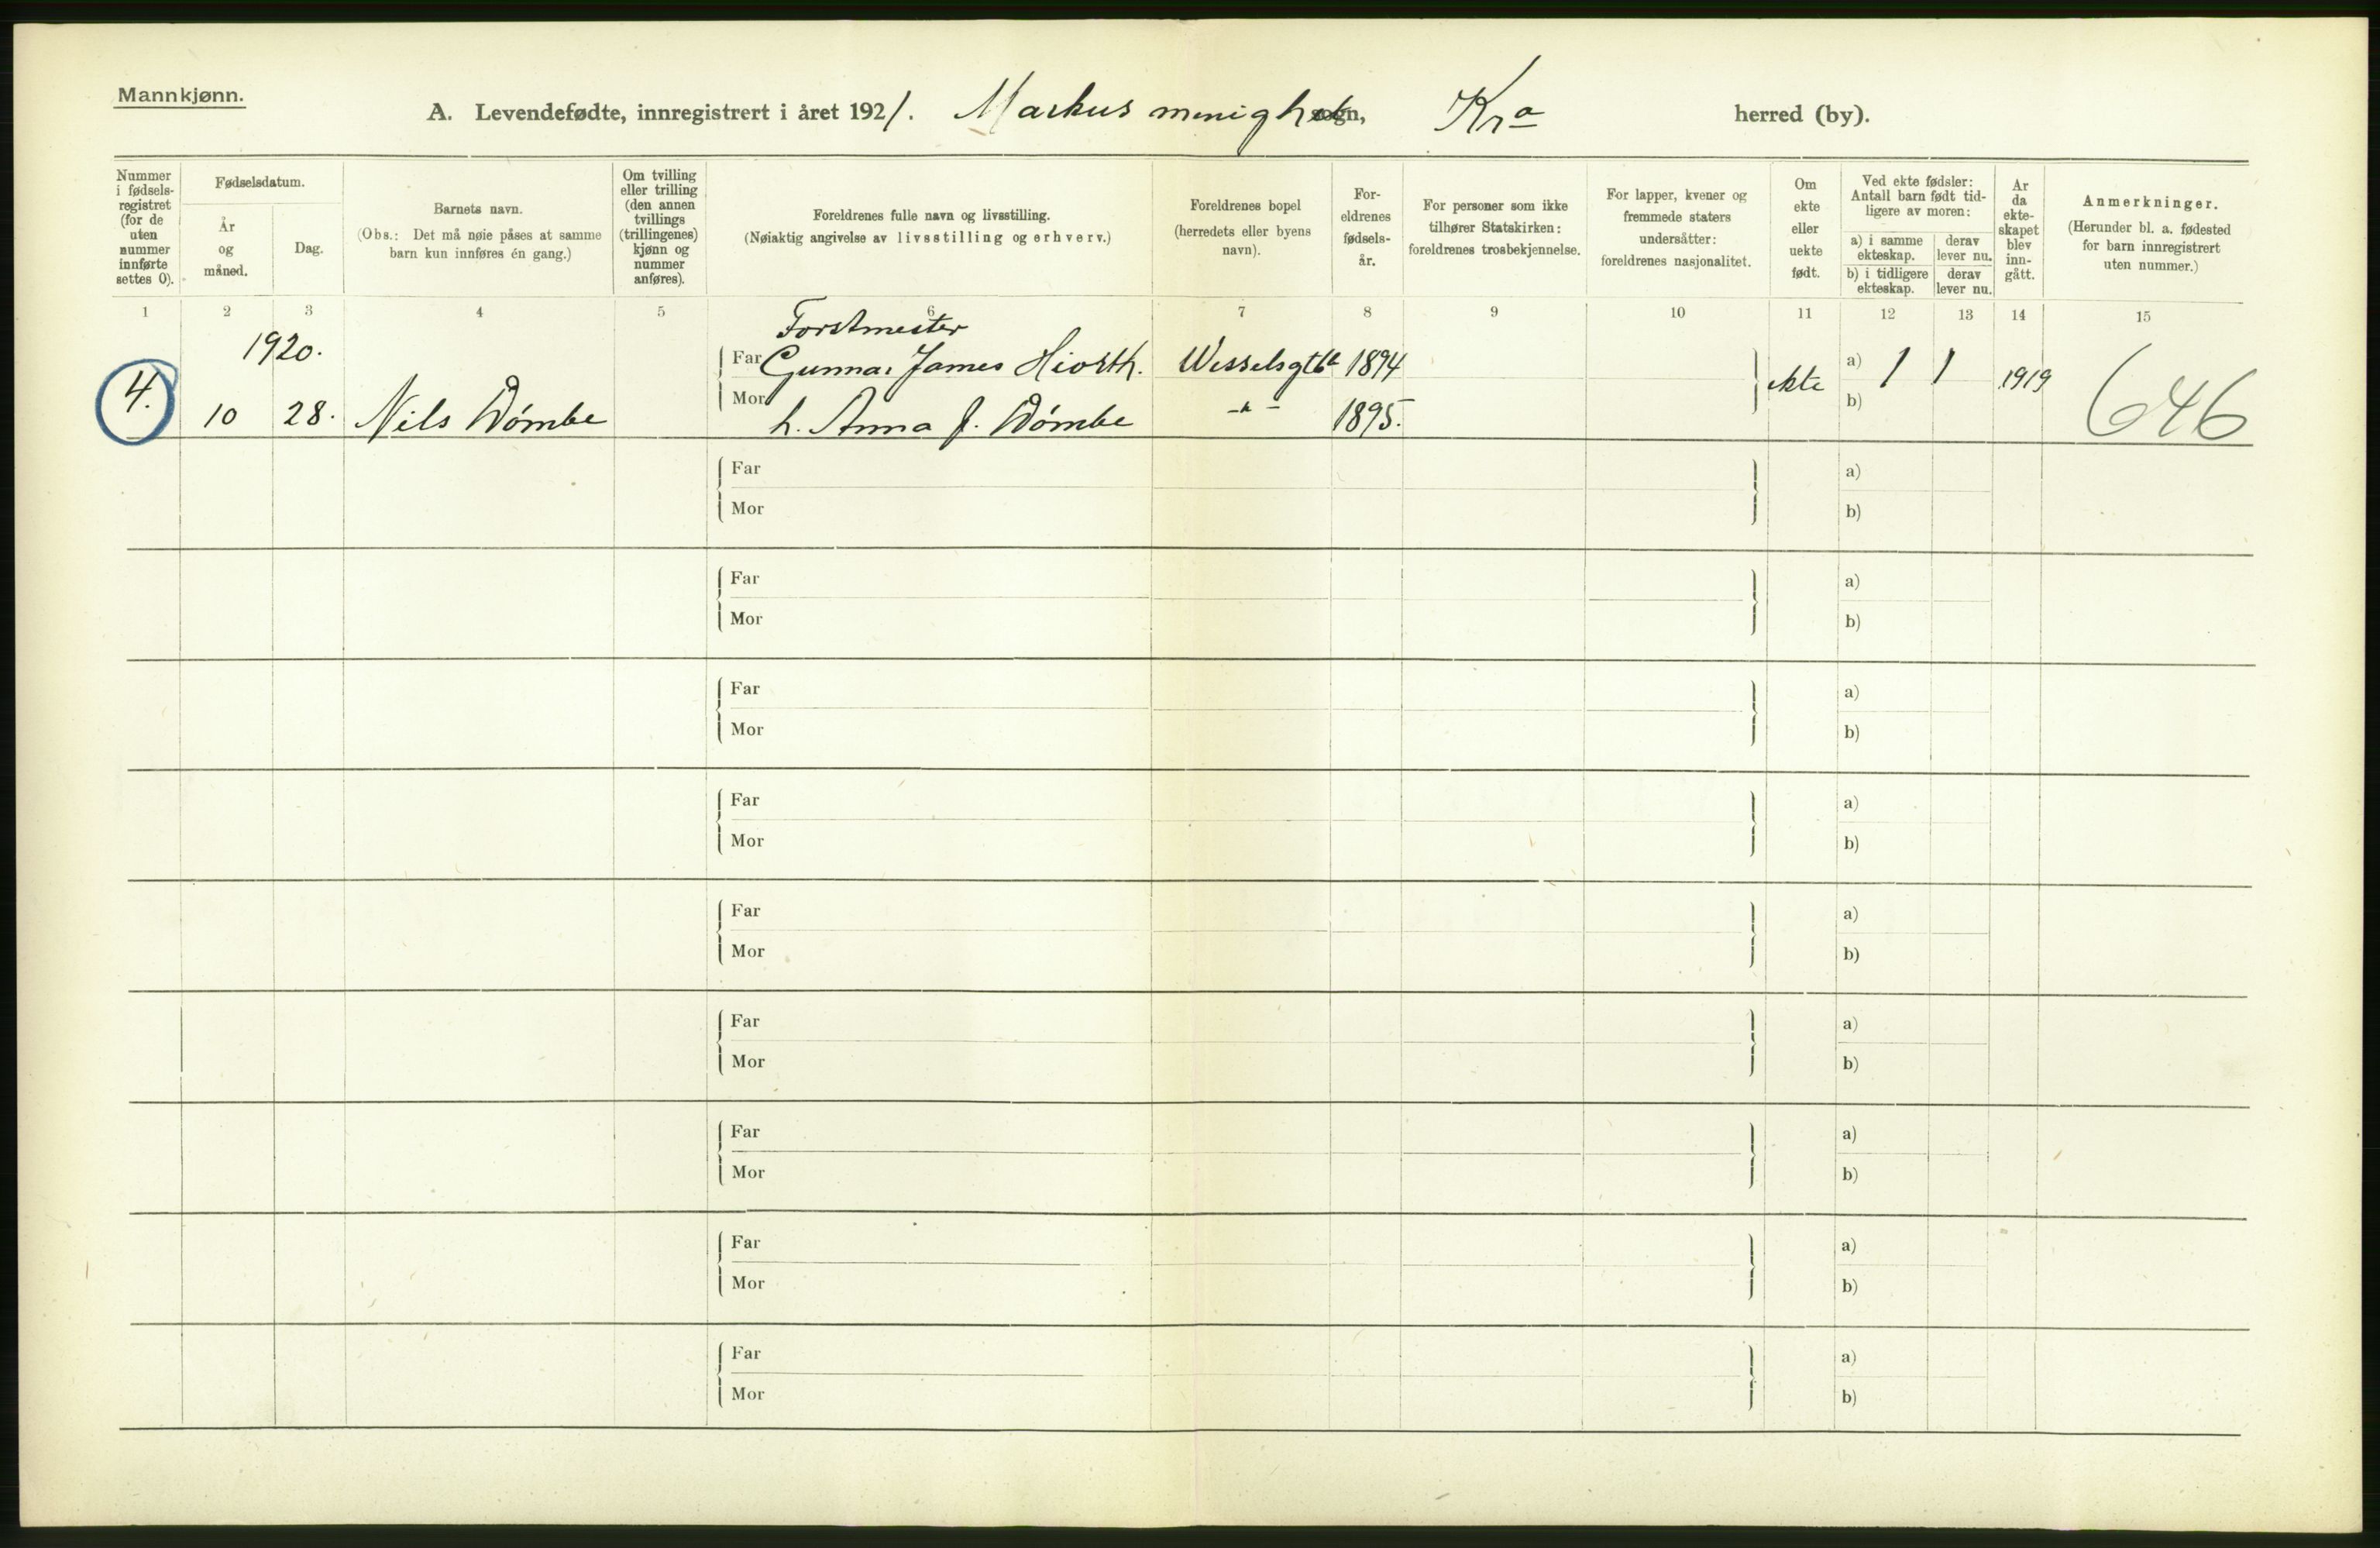 Mannkjønn.
A. Levendefødte, innregistrert i året 1921. Markus menighet sogn, Kra herred (by).
Nummer i fødsels-registret (for de uten nummer innførte settes 0).
Fødselsdatum.
År og måned.
Dag.
Barnets navn.
(Obs.: Det må nøie påses at samme barn kun innføres én gang.)
Om tvilling eller trilling (den annen tvillings (trillingenes) kjønn og nummer anføres).
Foreldrenes fulle navn og livsstilling.
(Nøiaktig angivelse av livsstilling og erhverv.)
Foreldrenes bopel (herredets eller byens navn).
For-eldrenes fødsels-år.
For personer som ikke tilhører Statskirken: foreldrenes trosbekjennelse.
For lapper, kvener og fremmede staters undersåtter: foreldrenes nasjonalitet.
Om ekte eller uekte født.
Ved ekte fødsler: Antall barn født tid-ligere av moren:
a) i samme ekteskap.
derav lever nu.
b) i tidligere ekteskap.
derav lever nu.
År da ekte-skapet blev inn-gått.
Anmerkninger.
(Herunder bl. a. fødested for barn innregistrert uten nummer.)
1 2 3 4 5 6 7 8 9 10 11 12 13 14 15
1920.
Forstmester
Far Gunnar James Hiorth. Wesselsgt 1894
4. ekte a) 1 1 1919 646
10 28. Nils Dömbe
Mor h. Anna J. Dömbe -"- 1895. b)
Far a)
Mor b)
Far a)
Mor b)
Far a)
Mor b)
Far a)
Mor b)
Far a)
Mor b)
Far a)
Mor b)
Far a)
Mor b)
Far a)
Mor b)
Far a)
Mor b)